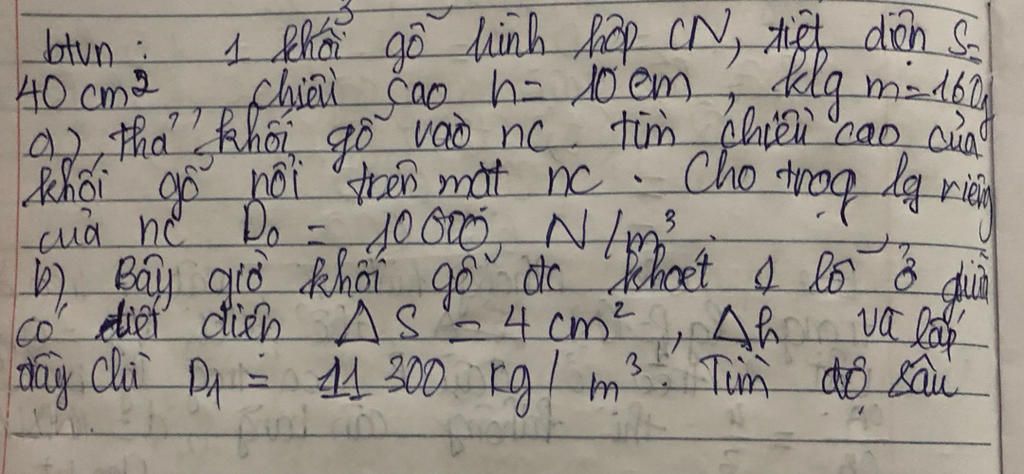 btvn : 1 khối gỗ hình hộp CN, tiết diện S=
40 cm², chiều cao h = 10 cm, klg m = 160g
a), thả khối gỗ vào nc. Tìm chiều cao của
khối gỗ nổi trên mặt nc. Cho trọg lg riêng
của nc D₀ = 10 000 N/m³.
b), Bây giờ khối gỗ đc khoét 1 lỗ ở giữa
có tiết diện Δ S = 4 cm², Δh và lấp
đầy chì D₁ = 11 300 kg/m³. Tìm độ sâu